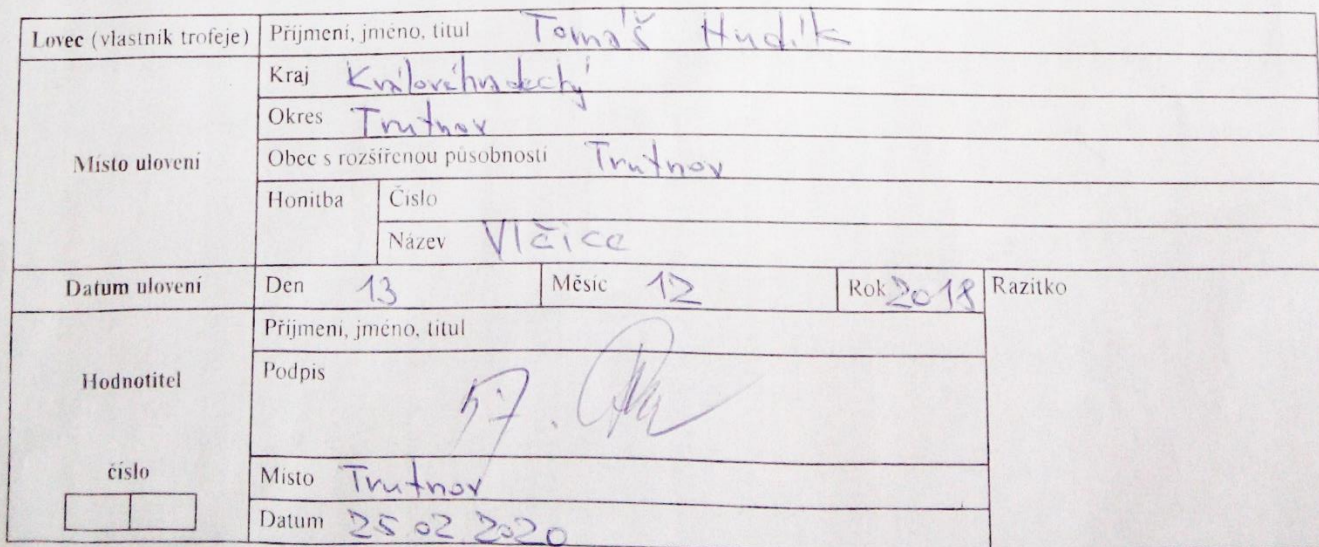 Lovec (vlastník trofeje) Příjmení, jméno, titul Tomáš Hudík
Místo ulovení
Kraj Královéhradecký
Okres Trutnov
Obec s rozšířenou působností Trutnov
Honitba Číslo
Název Vlčice
Datum ulovení Den 13 Měsíc 12 Rok 2018 Razítko
Hodnotitel
Příjmení, jméno, titul
Podpis 57.
číslo
Místo Trutnov
Datum 25.02.2020